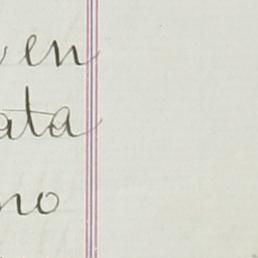 en
ata
no